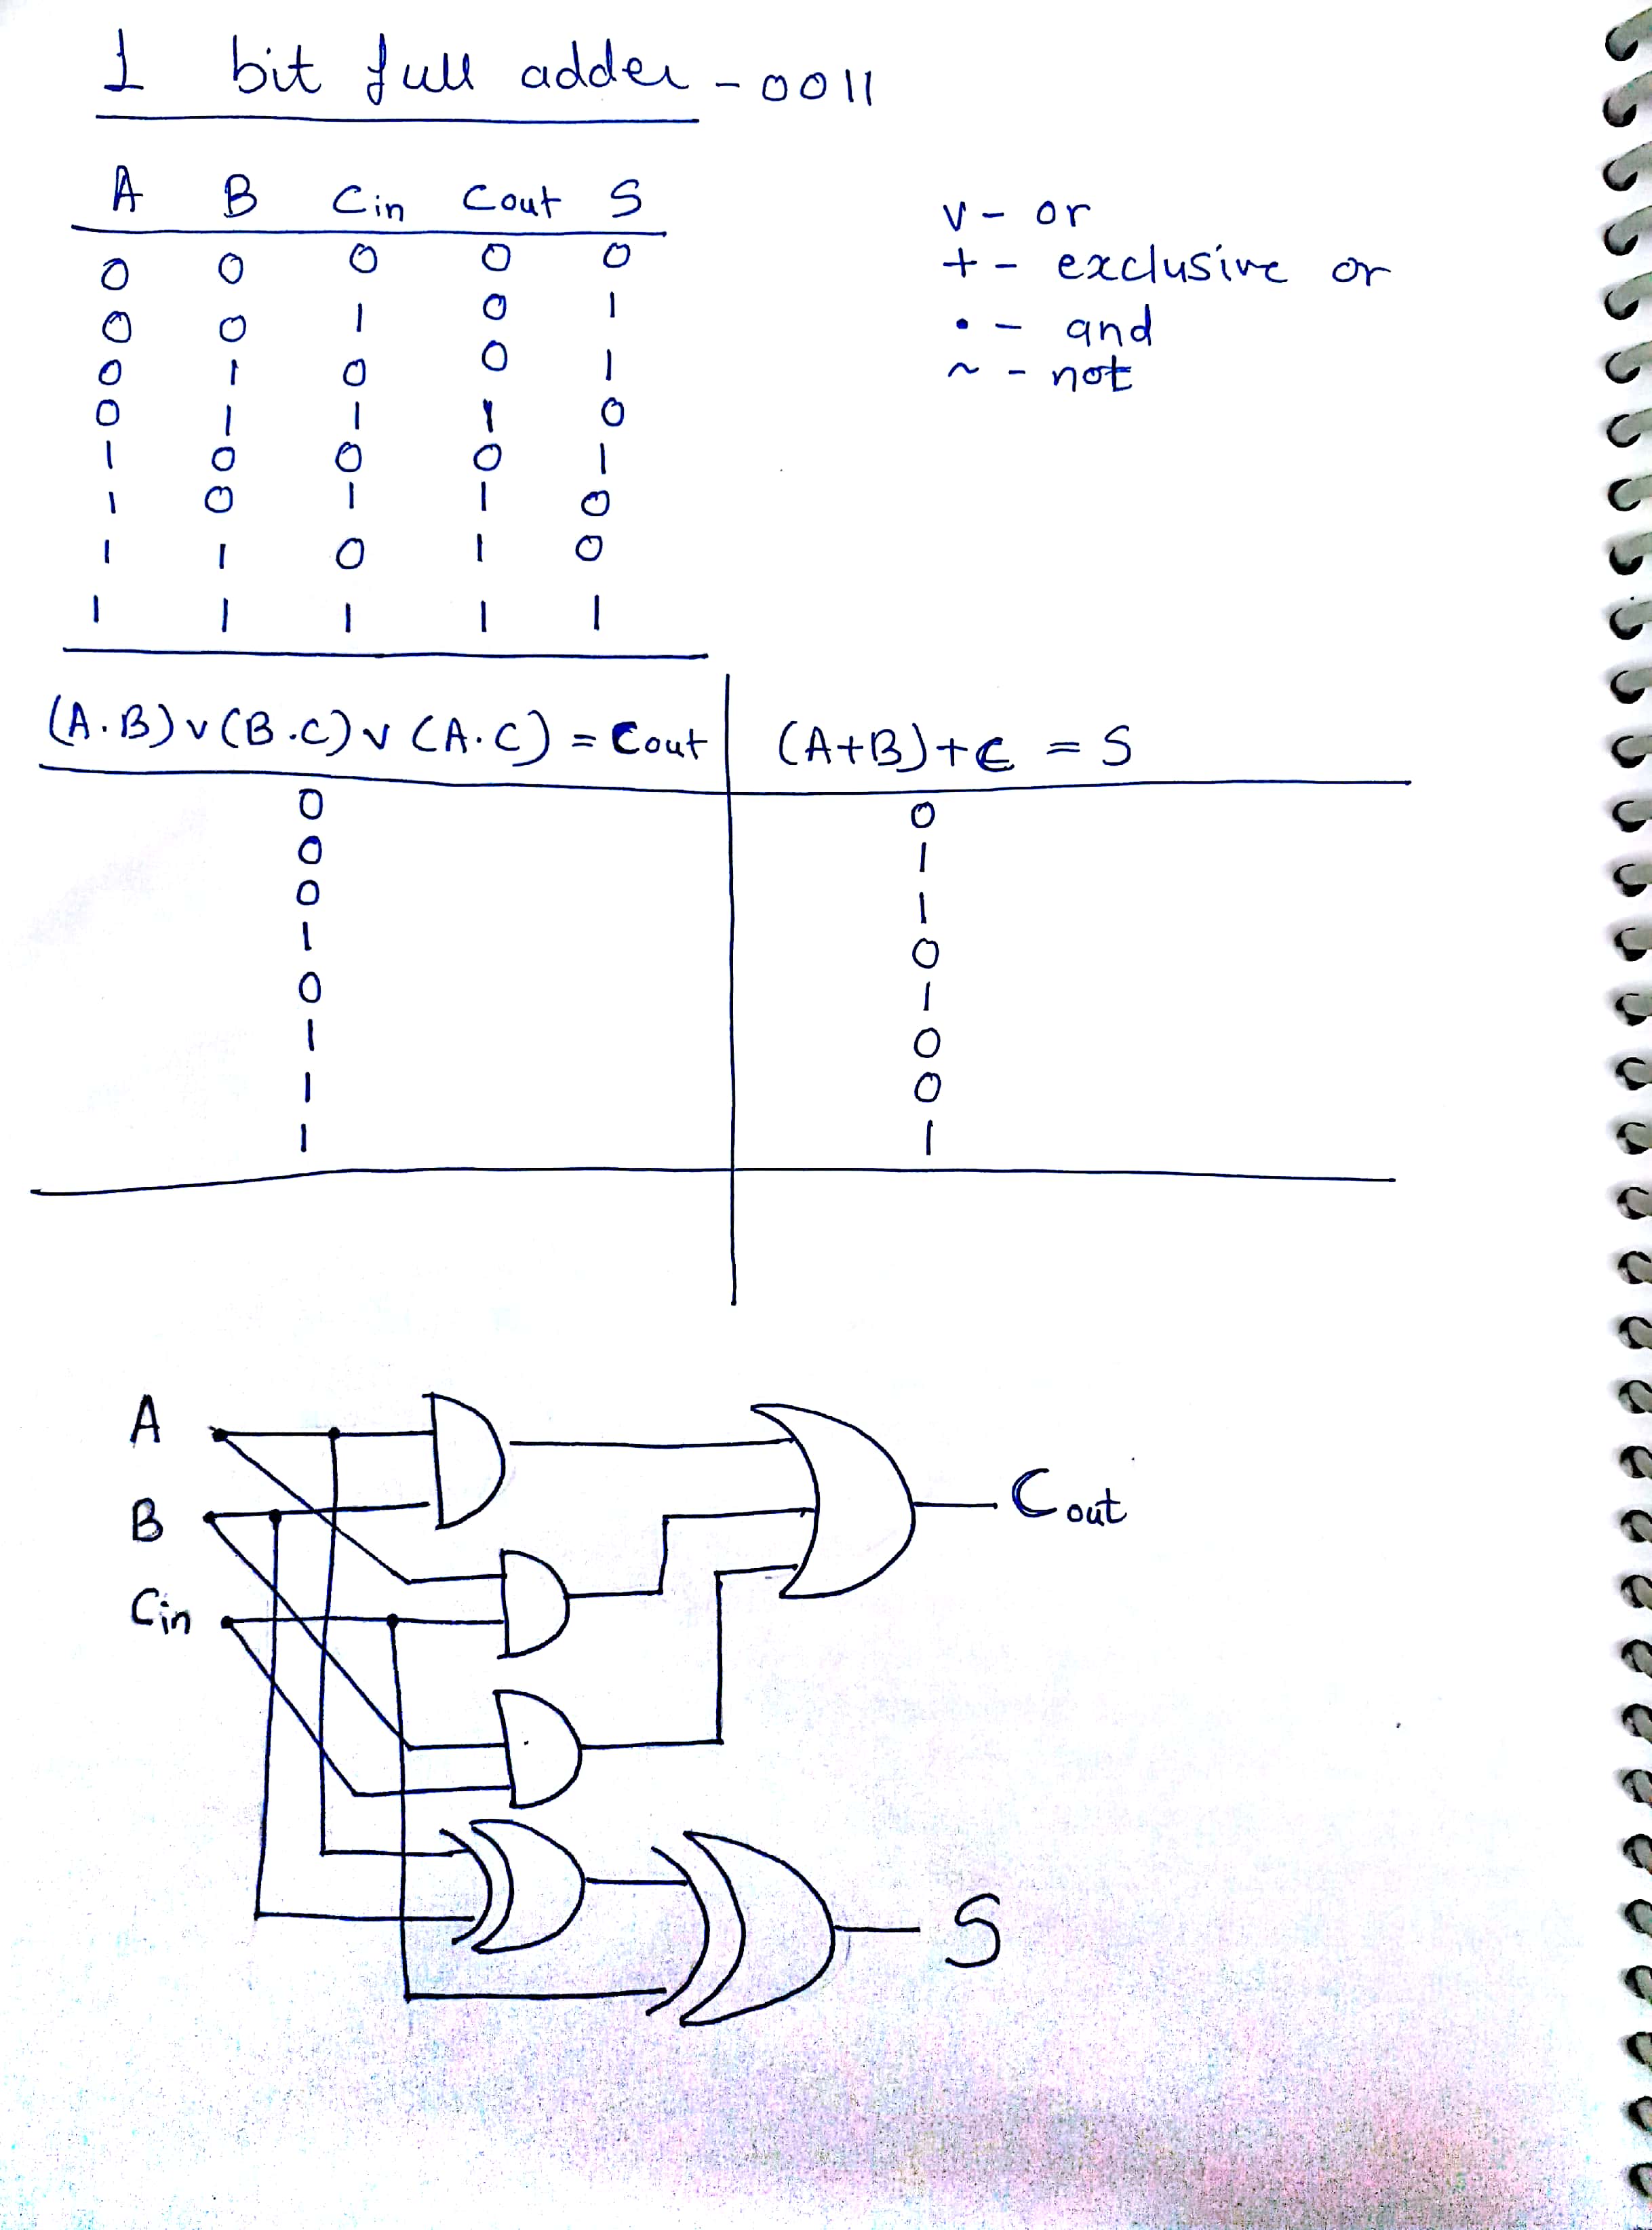 1 bit full adder - 0011
A B Cin Cout S
0 0 0 0 0
0 0 1 0 1
0 1 0 0 1
0 1 1 1 0
1 0 0 0 1
1 0 1 1 0
1 1 0 1 0
1 1 1 1 1
v - or
+ - exclusive or
• - and
~ - not
(A.B) v (B.C) v (A.C) = Cout
0
0
0
1
0
1
1
1
(A+B)+C = S
0
1
1
0
1
0
0
1
A
B
Cin
Cout
S